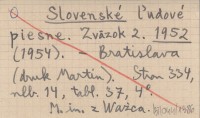 Slovenské ľudové
piesne. Zväzok 2. 1952
(1954). – Bratislava
(druk Martin). Stron 334,
nlb. 14, tabl. 37, 4°
M. in. z Ważca.